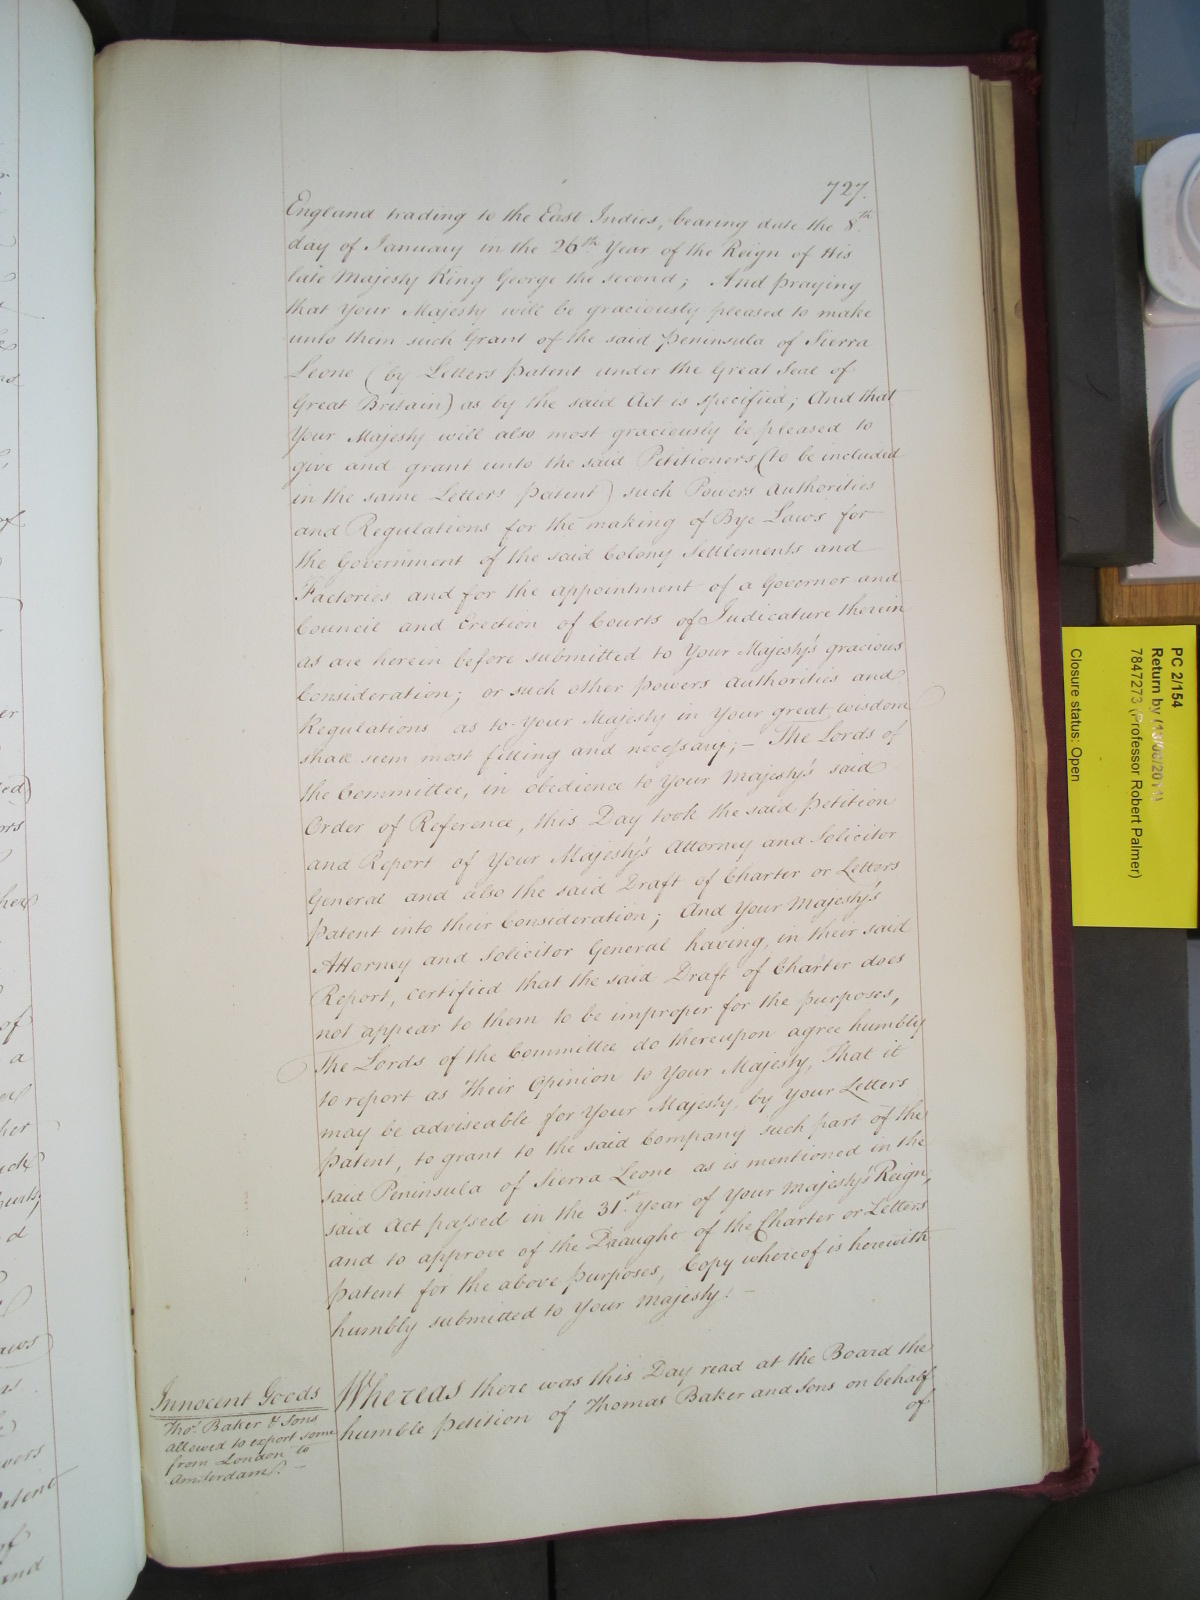 727.
England trading to the East Indies, bearing date the 8th.
day of January in the 26th. Year of the Reign of His
late Majesty King George the second; And praying
that Your Majesty will be graciously pleased to make
unto them such Grant of the said Peninsula of Sierra
Leone (by Letters Patent under the Great Seal of
Great Britain) as by the said Act is specified; And that
Your Majesty will also most graciously be pleased to
give and grant unto the said Petitioners (to be included
in the same Letters Patent) such Powers Authorities
and Regulations for the making of Bye Laws for
the Government of the said Colony Settlements and
Factories and for the appointment of a Governor and
Council and Erection of Courts of Judicature therein
as are herein before submitted to Your Majesty's gracious
Consideration; or such other Powers Authorities and
Regulations as to Your Majesty in Your great wisdom
shall seem most fitting and necessary; — The Lords of
the Committee, in obedience to Your Majesty's said
Order of Reference, this Day took the said Petition
and Report of Your Majesty's Attorney and Solicitor
General and also the said Draft of Charter or Letters
Patent into their Consideration; And Your Majesty's
Attorney and Solicitor General having, in their said
Report, certified that the said Draft of Charter does
not appear to them to be improper for the purposes,
The Lords of the Committee do thereupon agree humbly
to report as Their Opinion to Your Majesty, That it
may be adviseable for Your Majesty, by Your Letters
Patent, to grant to the said Company such part of the
said Peninsula of Sierra Leone as is mentioned in the
said Act passed in the 31st. Year of Your Majesty's Reign,
and to approve of the Draught of the Charter or Letters
Patent for the above purposes, Copy whereof is herewith
humbly submitted to Your Majesty. —
Innocent Goods
Thos. Baker & Sons
allowed to export some
from London to
Amsterdam. —
Whereas there was this Day read at the Board the
humble Petition of Thomas Baker and Sons on behalf
of
PC 2/154
Return by (13/06/2011)
7847273 (Professor Robert Palmer)
Closure status: Open